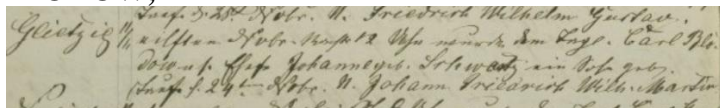 Taufe d. 25t Novbr. N. Friedrich Wilhelm Gustav.
Glietzig eilften Novbr. Nachts 12 Uhr wurde dem Tagl. Carl Blö-
dow u. s. Ehefr. Johanne geb. Schwartz ein Sohn geb.
Taufe d. 24t Novbr. N. Johann Friedrich Wilh. Martin